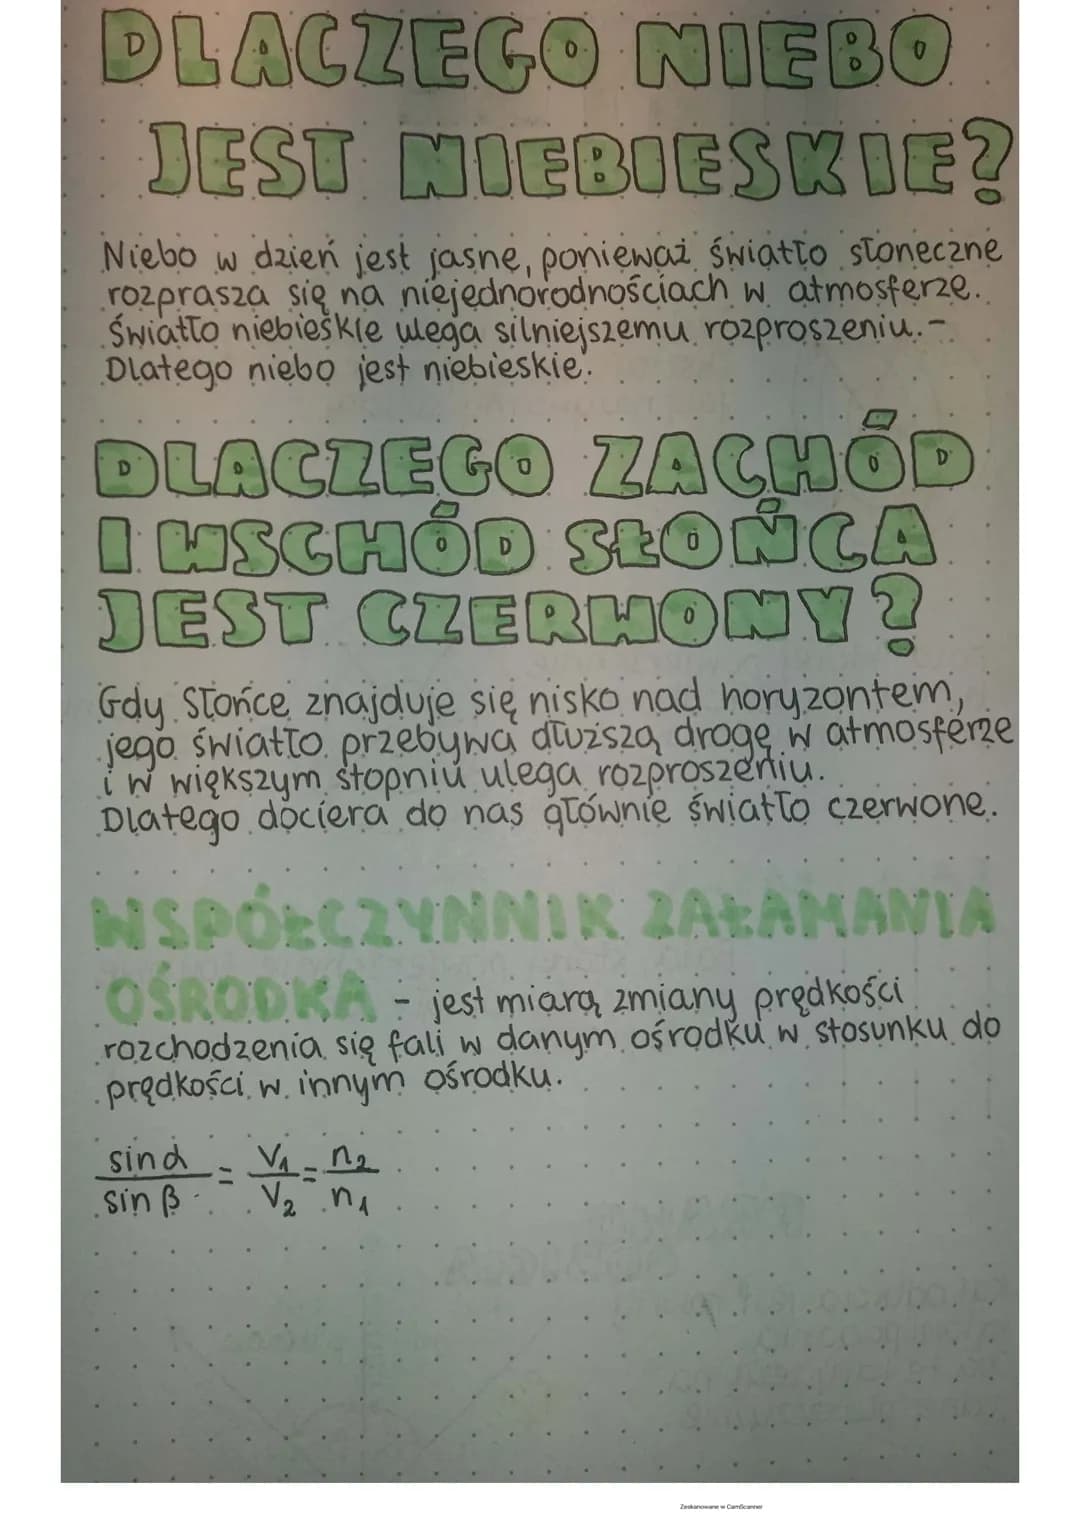 DLACZEGO NIEBO
JEST NIEBIESKIE?
Niebo w dzień jest jasne, ponieważ światło słoneczne
rozprasza się na niejednorodnościach w atmosferze.
Światło niebieskie ulega silniejszemu rozproszeniu.-
Dlatego niebo jest niebieskie.
DLACZEGO ZACHÓD
I WSCHÓD SŁOŃCA
JEST CZERWONY?
Gdy Słońce znajduje się nisko nad horyzontem,
jego światło przebywa dłuższą drogę w atmosferze
i w większym stopniu ulega rozproszeniu.
Dlatego dociera do nas głównie światło czerwone.
WSPÓŁCZYNNIK ZAŁAMANIA
OŚRODKA - jest miarą zmiany prędkości
rozchodzenia się fali w danym ośrodku w stosunku do
prędkości w innym ośrodku.
sin α / sin β = V₁ / V₂ = n₂ / n₁
Zeskanowane w CamScanner